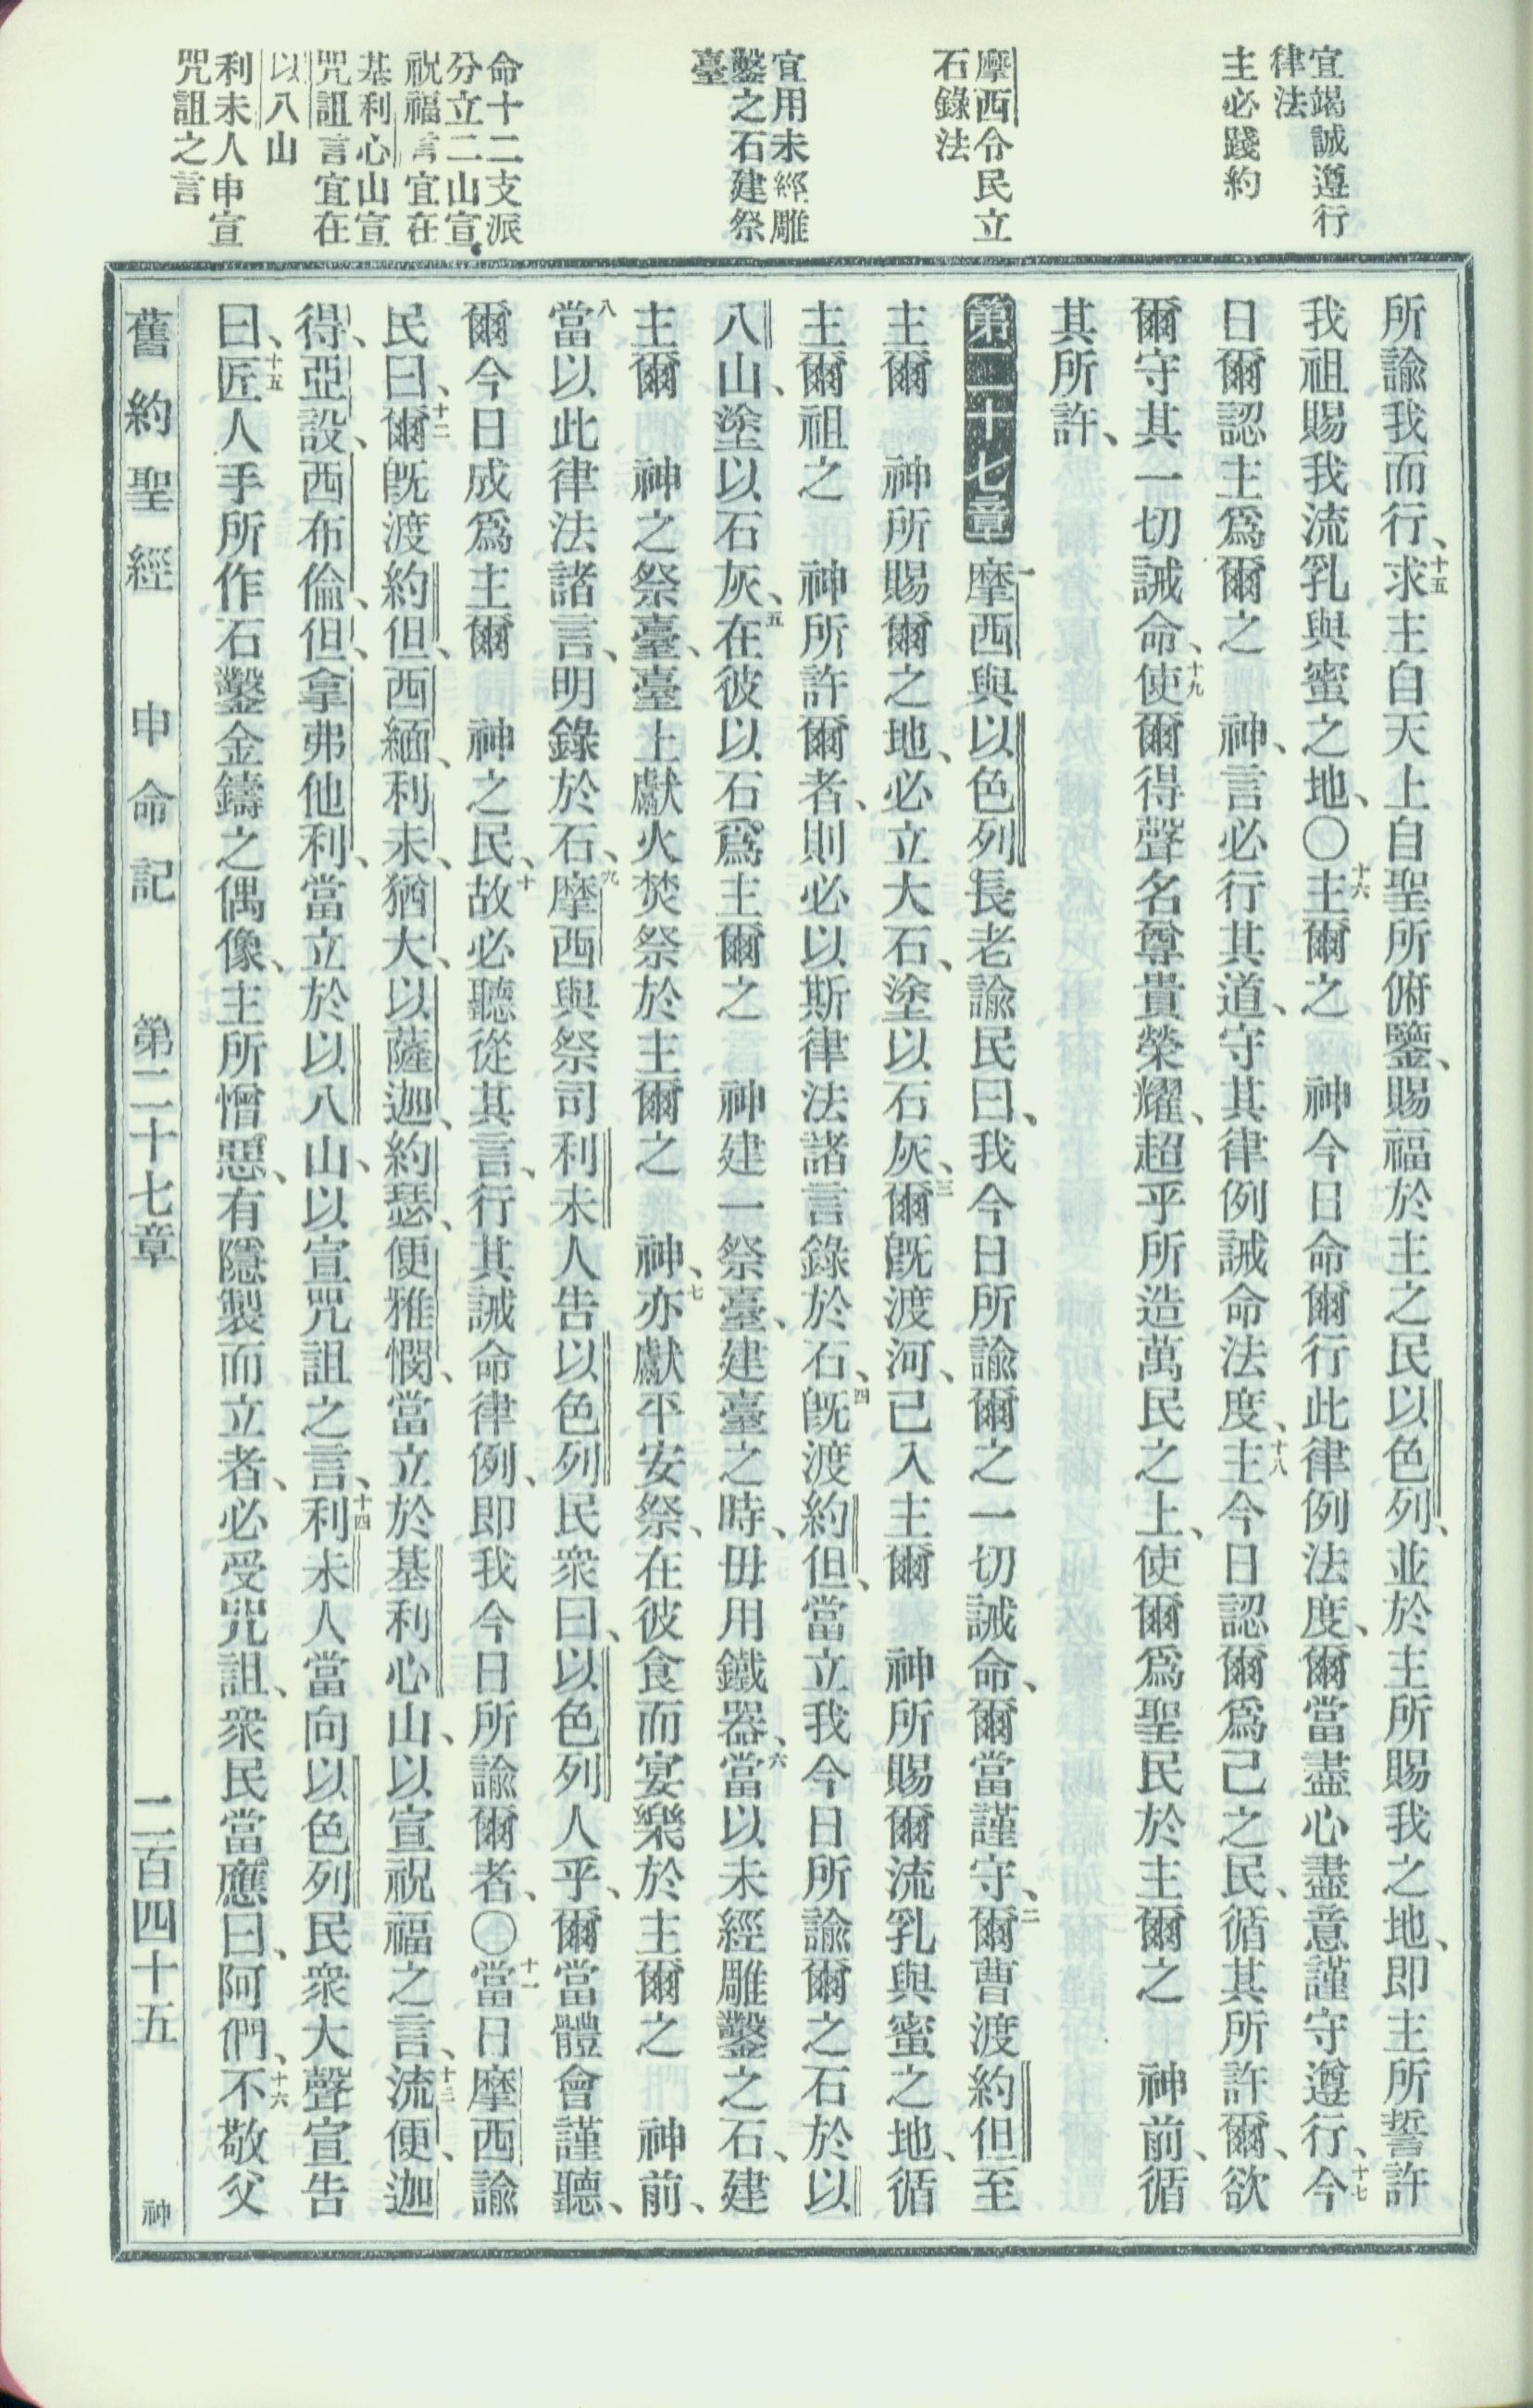 宜竭誠遵行
律法
主必踐約
摩西令民立
石錄法
宜用未經雕
鑿之石建祭
臺
命十二支派
分立二山宣
祝福言宜在
基利心山宣
咒詛言宜在
以八山
利未人申宣
咒詛之言
所諭我而行、十五求主自天上自聖所俯鑒、賜福於主之民以色列、並於主所賜我之地、即主所誓許
我祖賜我流乳與蜜之地、〇十六主爾之 神今日命爾行此律例法度、爾當盡心盡意謹守遵行、十七今
日爾認主爲爾之 神、言必行其道、守其律例誡命法度、十八主今日認爾爲己之民、循其所許爾、欲
爾守其一切誡命、十九使爾得聲名尊貴榮耀、超乎所造萬民之上、使爾爲聖民於主爾之 神前、循
其所許、
第二十七章 一摩西與以色列長老諭民曰、我今日所諭爾之一切誡命、爾當謹守、二爾曹渡約但至
主爾 神所賜爾之地、必立大石、塗以石灰、三爾既渡河、已入主爾 神所賜爾流乳與蜜之地、循
主爾祖之 神所許爾者、則必以斯律法諸言錄於石、四既渡約但、當立我今日所諭爾之石於以
八山、塗以石灰、五在彼以石爲主爾之 神建一祭臺、建臺之時、毋用鐵器、六當以未經雕鑿之石、建
主爾 神之祭臺、臺上獻火焚祭於主爾之 神、七亦獻平安祭、在彼食而宴樂於主爾之 神前、
八當以此律法諸言、明錄於石、九摩西與祭司利未人告以色列民衆曰、以色列人乎、爾當體會謹聽、
爾今日成爲主爾 神之民、十故必聽從其言、行其誡命律例、即我今日所諭爾者、〇十一當日摩西諭
民曰、十二爾既渡約但、西緬、利未、猶大、以薩迦、約瑟、便雅憫、當立於基利心山、以宣祝福之言、十三流便、迦
得、亞設、西布倫、但、拿弗他利、當立於以八山、以宣咒詛之言、十四利未人當向以色列民衆大聲宣告
曰、十五匠人手所作石鑿金鑄之偶像、主所憎惡、有隱製而立者、必受咒詛、衆民當應曰、阿們、十六不敬父
舊約聖經 申命記 第二十七章 二百四十五 神